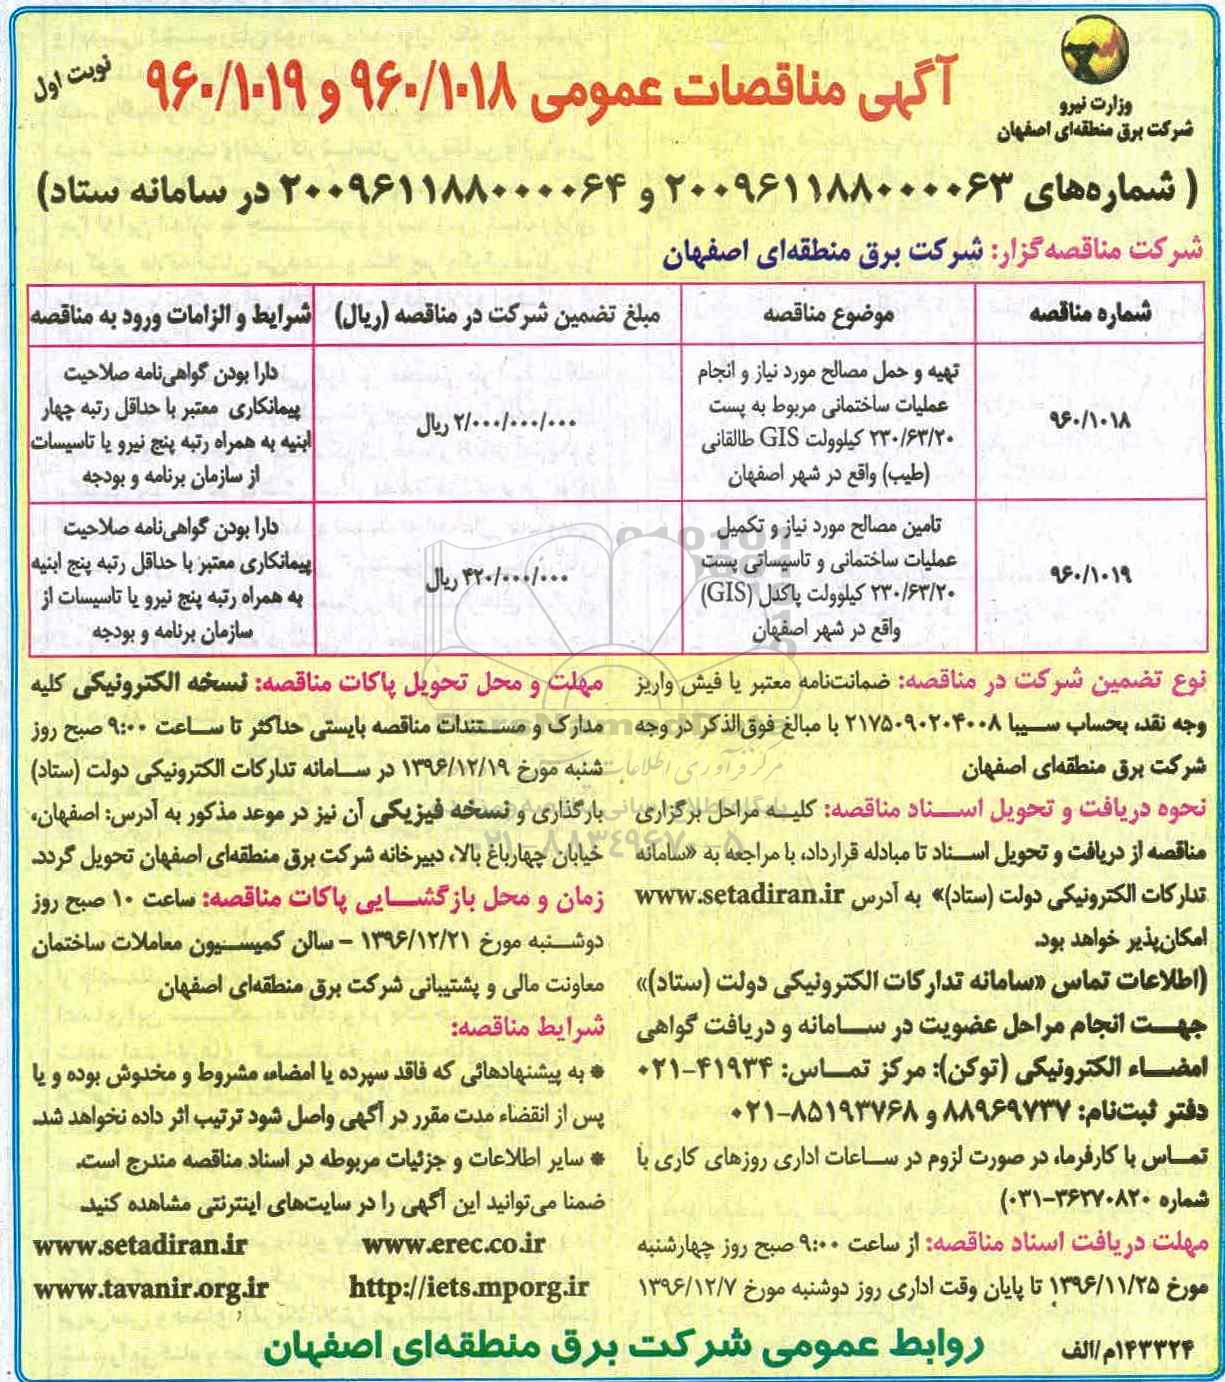 وزارت نیرو
شرکت برق منطقه‌ای اصفهان
آگهی مناقصات عمومی ۹۶۰/۱۰۱۸ و ۹۶۰/۱۰۱۹
نوبت اول
( شماره‌های ۲۰۰۹۶۱۱۸۸۰۰۰۰۶۳ و ۲۰۰۹۶۱۱۸۸۰۰۰۰۶۴ در سامانه ستاد)
شرکت مناقصه‌گزار: شرکت برق منطقه‌ای اصفهان
شماره مناقصه
موضوع مناقصه
مبلغ تضمین شرکت در مناقصه (ریال)
شرایط و الزامات ورود به مناقصه
۹۶۰/۱۰۱۸
تهیه و حمل مصالح مورد نیاز و انجام
عملیات ساختمانی مربوط به پست
۲۳۰/۶۳/۲۰ کیلوولت GIS طالقانی
(طیب) واقع در شهر اصفهان
۲/۰۰۰/۰۰۰/۰۰۰ ریال
دارا بودن گواهی‌نامه صلاحیت
پیمانکاری معتبر با حداقل رتبه چهار
ابنیه به همراه رتبه پنج نیرو یا تاسیسات
از سازمان برنامه و بودجه
۹۶۰/۱۰۱۹
تامین مصالح مورد نیاز و تکمیل
عملیات ساختمانی و تاسیساتی پست
۲۳۰/۶۳/۲۰ کیلوولت پاکدل (GIS)
واقع در شهر اصفهان
۴۲۰/۰۰۰/۰۰۰ ریال
دارا بودن گواهی‌نامه صلاحیت
پیمانکاری معتبر با حداقل رتبه پنج ابنیه
به همراه رتبه پنج نیرو یا تاسیسات از
سازمان برنامه و بودجه
نوع تضمین شرکت در مناقصه: ضمانت‌نامه معتبر یا فیش واریز
وجه نقد، بحساب سیبا ۲۱۷۵۰۹۰۲۰۴۰۰۸ با مبالغ فوق‌الذکر در وجه
شرکت برق منطقه‌ای اصفهان
نحوه دریافت و تحویل اسناد مناقصه: کلیه مراحل برگزاری
مناقصه از دریافت و تحویل اسناد تا مبادله قرارداد، با مراجعه به «سامانه
تدارکات الکترونیکی دولت (ستاد)» به آدرس www.setadiran.ir
امکان‌پذیر خواهد بود.
(اطلاعات تماس «سامانه تدارکات الکترونیکی دولت (ستاد)»
جهت انجام مراحل عضویت در سامانه و دریافت گواهی
امضاء الکترونیکی (توکن): مرکز تماس: ۴۱۹۳۴-۰۲۱
دفتر ثبت‌نام: ۸۸۹۶۹۷۳۷ و ۸۵۱۹۳۷۶۸-۰۲۱
تماس با کارفرما، در صورت لزوم در ساعات اداری روزهای کاری با
شماره ۳۶۲۷۰۸۲۰-۰۳۱)
مهلت دریافت اسناد مناقصه: از ساعت ۹:۰۰ صبح روز چهارشنبه
مورخ ۱۳۹۶/۱۱/۲۵ تا پایان وقت اداری روز دوشنبه مورخ ۱۳۹۶/۱۲/۷
مهلت و محل تحویل پاکات مناقصه: نسخه الکترونیکی کلیه
مدارک و مستندات مناقصه بایستی حداکثر تا ساعت ۹:۰۰ صبح روز
شنبه مورخ ۱۳۹۶/۱۲/۱۹ در سامانه تدارکات الکترونیکی دولت (ستاد)
بارگذاری و نسخه فیزیکی آن نیز در موعد مذکور به آدرس: اصفهان،
خیابان چهارباغ بالا، دبیرخانه شرکت برق منطقه‌ای اصفهان تحویل گردد.
زمان و محل بازگشایی پاکات مناقصه: ساعت ۱۰ صبح روز
دوشنبه مورخ ۱۳۹۶/۱۲/۲۱ - سالن کمیسیون معاملات ساختمان
معاونت مالی و پشتیبانی شرکت برق منطقه‌ای اصفهان
شرایط مناقصه:
* به پیشنهادهائی که فاقد سپرده یا امضاء، مشروط و مخدوش بوده و یا
پس از انقضاء مدت مقرر در آگهی واصل شود ترتیب اثر داده نخواهد شد.
* سایر اطلاعات و جزئیات مربوطه در اسناد مناقصه مندرج است.
ضمنا می‌توانید این آگهی را در سایت‌های اینترنتی مشاهده کنید.
www.erec.co.ir www.setadiran.ir
http://iets.mporg.ir www.tavanir.org.ir
۱۴۳۳۲۴م/الف
روابط عمومی شرکت برق منطقه‌ای اصفهان
مرکز فرآوری اطلاعات
۰۲۱-۸۸۳۴۹۶۷۰-۵